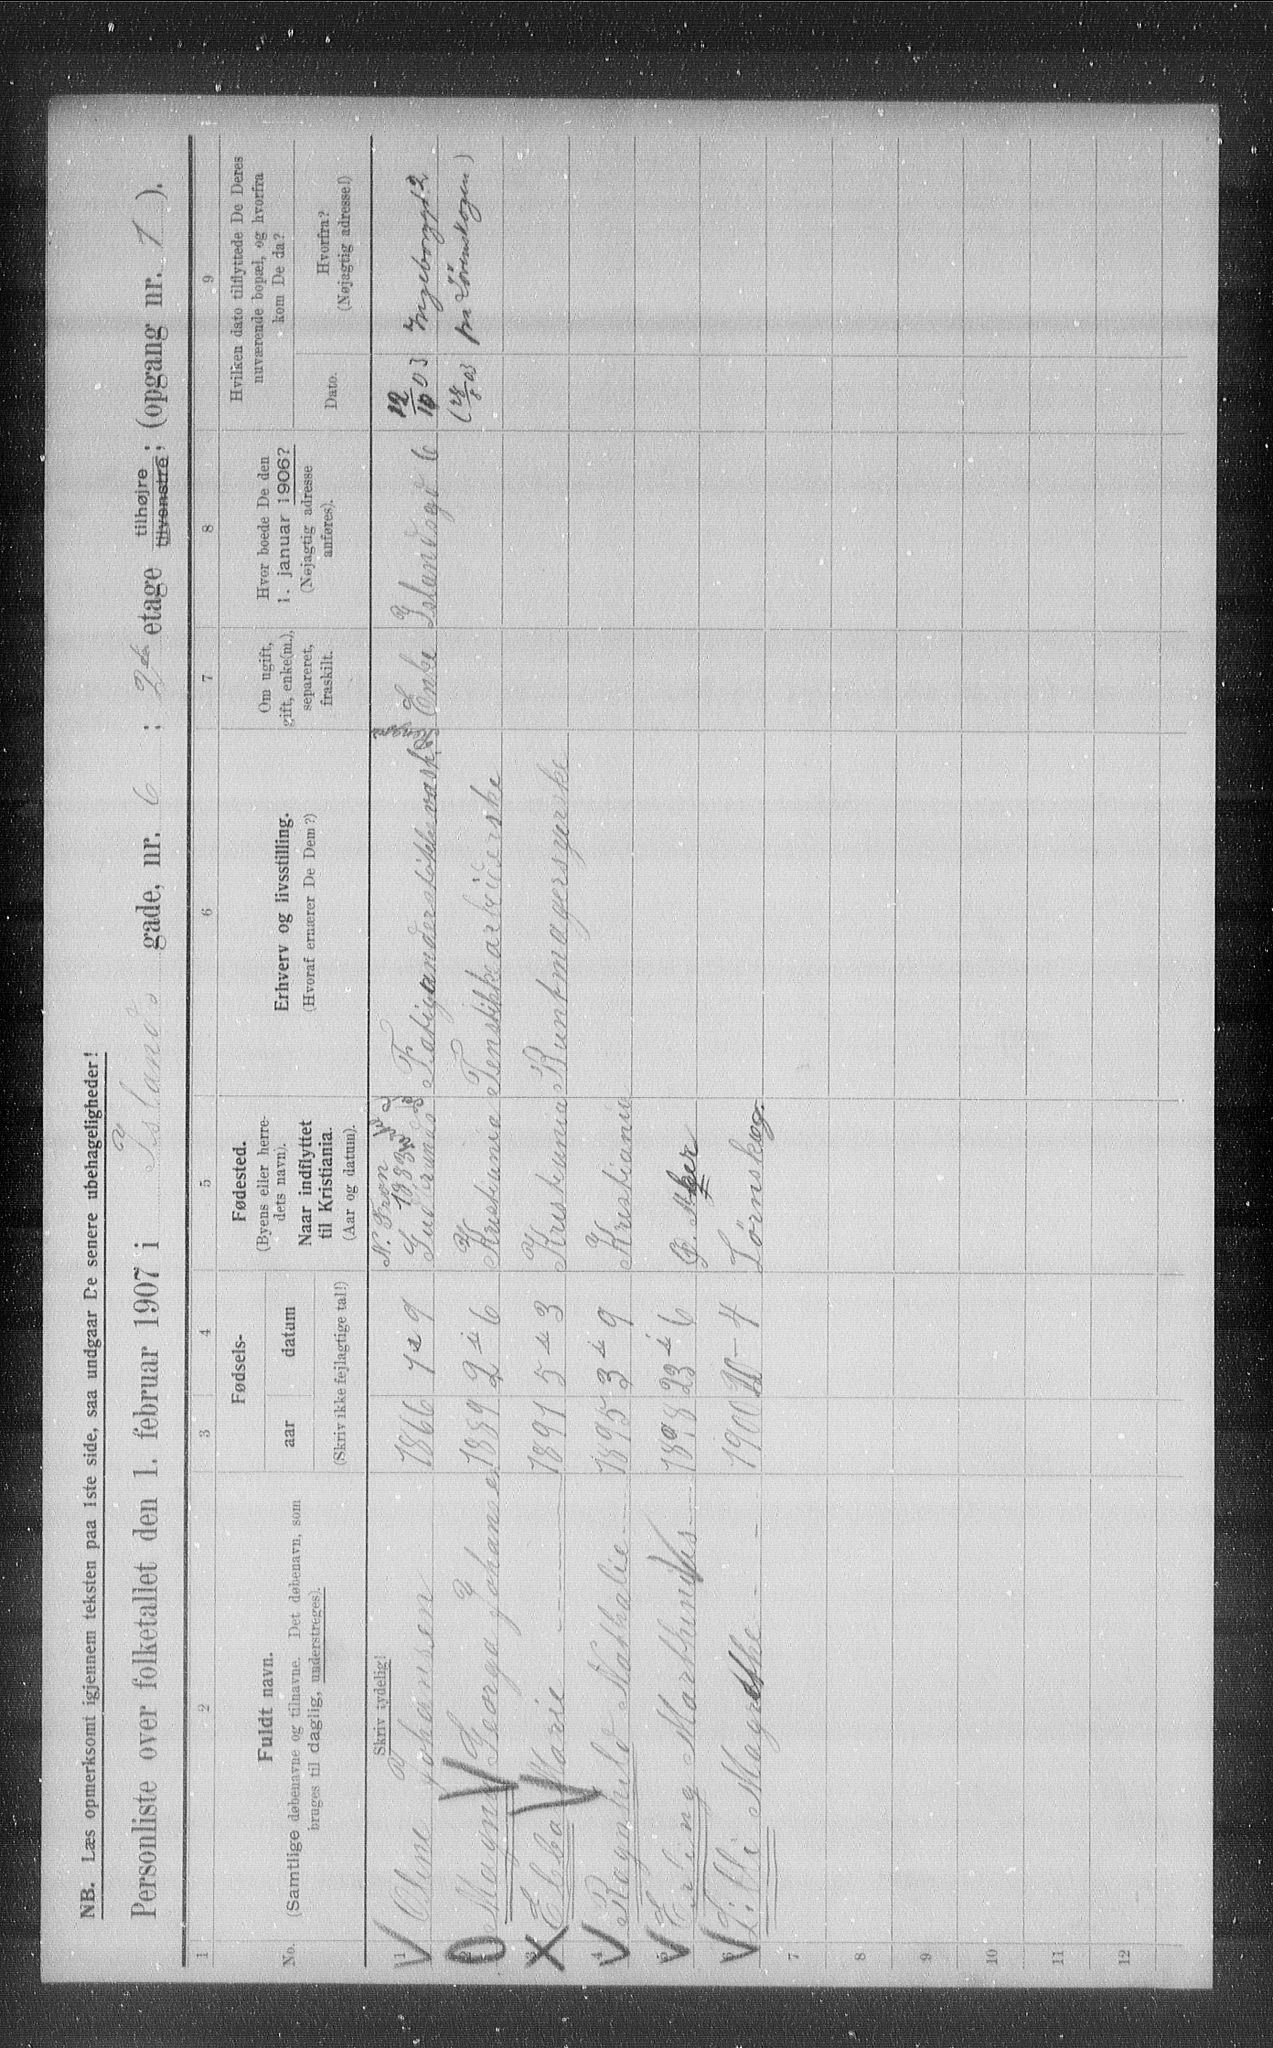 NB. Læs opmerksomt igjennem teksten paa 1ste side, saa undgaar De senere ubehageligheder!
Personliste over folketallet den 1. februar 1907 i Islands gade, nr. 6 ; 2den etage tilhøjre ; tilvenstre ; (opgang nr. 1 ).
1 2 3 4 5 6 7 8 9
No.
Fuldt navn.
(Samtlige døbenavne og tilnavne. Det døbenavn, som
bruges til daglig, understreges).
Fødsels-
aar datum
(Skriv ikke fejlagtige tal!)
Fødested.
(Byens eller herre-
dets navn).
Naar indflyttet
til Kristiania.
(Aar og datum).
Erhverv og livsstilling.
(Hvoraf ernærer De Dem?)
Om ugift,
gift, enke(m.),
separeret,
fraskilt.
Hvor boede De den
1. januar 1906?
(Nøjagtig adresse
anføres).
Hvilken dato tilflyttede De Deres
nuværende bopæl, og hvorfra
kom De da?
Dato.
Hvorfra?
(Nøjagtig adresse!)
Skriv tydelig!
N. Fron
1 Oline Johansen 1866 9 1883 Enke Islandsgd 6 10 03 Ingeborgg 2
2 Magni Georga Johansen 1889 2 6 Kristiania Fenstikkearbeiderske
3 Ebba Marie 1891 5 3 Kristiania Buntmagersyerske
4 Ragnhild Nathalie 1895 3 9 Kristiania
5 Erling Marthinius 1898 23 6 Aker
6 Lilli Magrethe 1900 20 - 4 Lørnskog
7
8
9
10
11
12